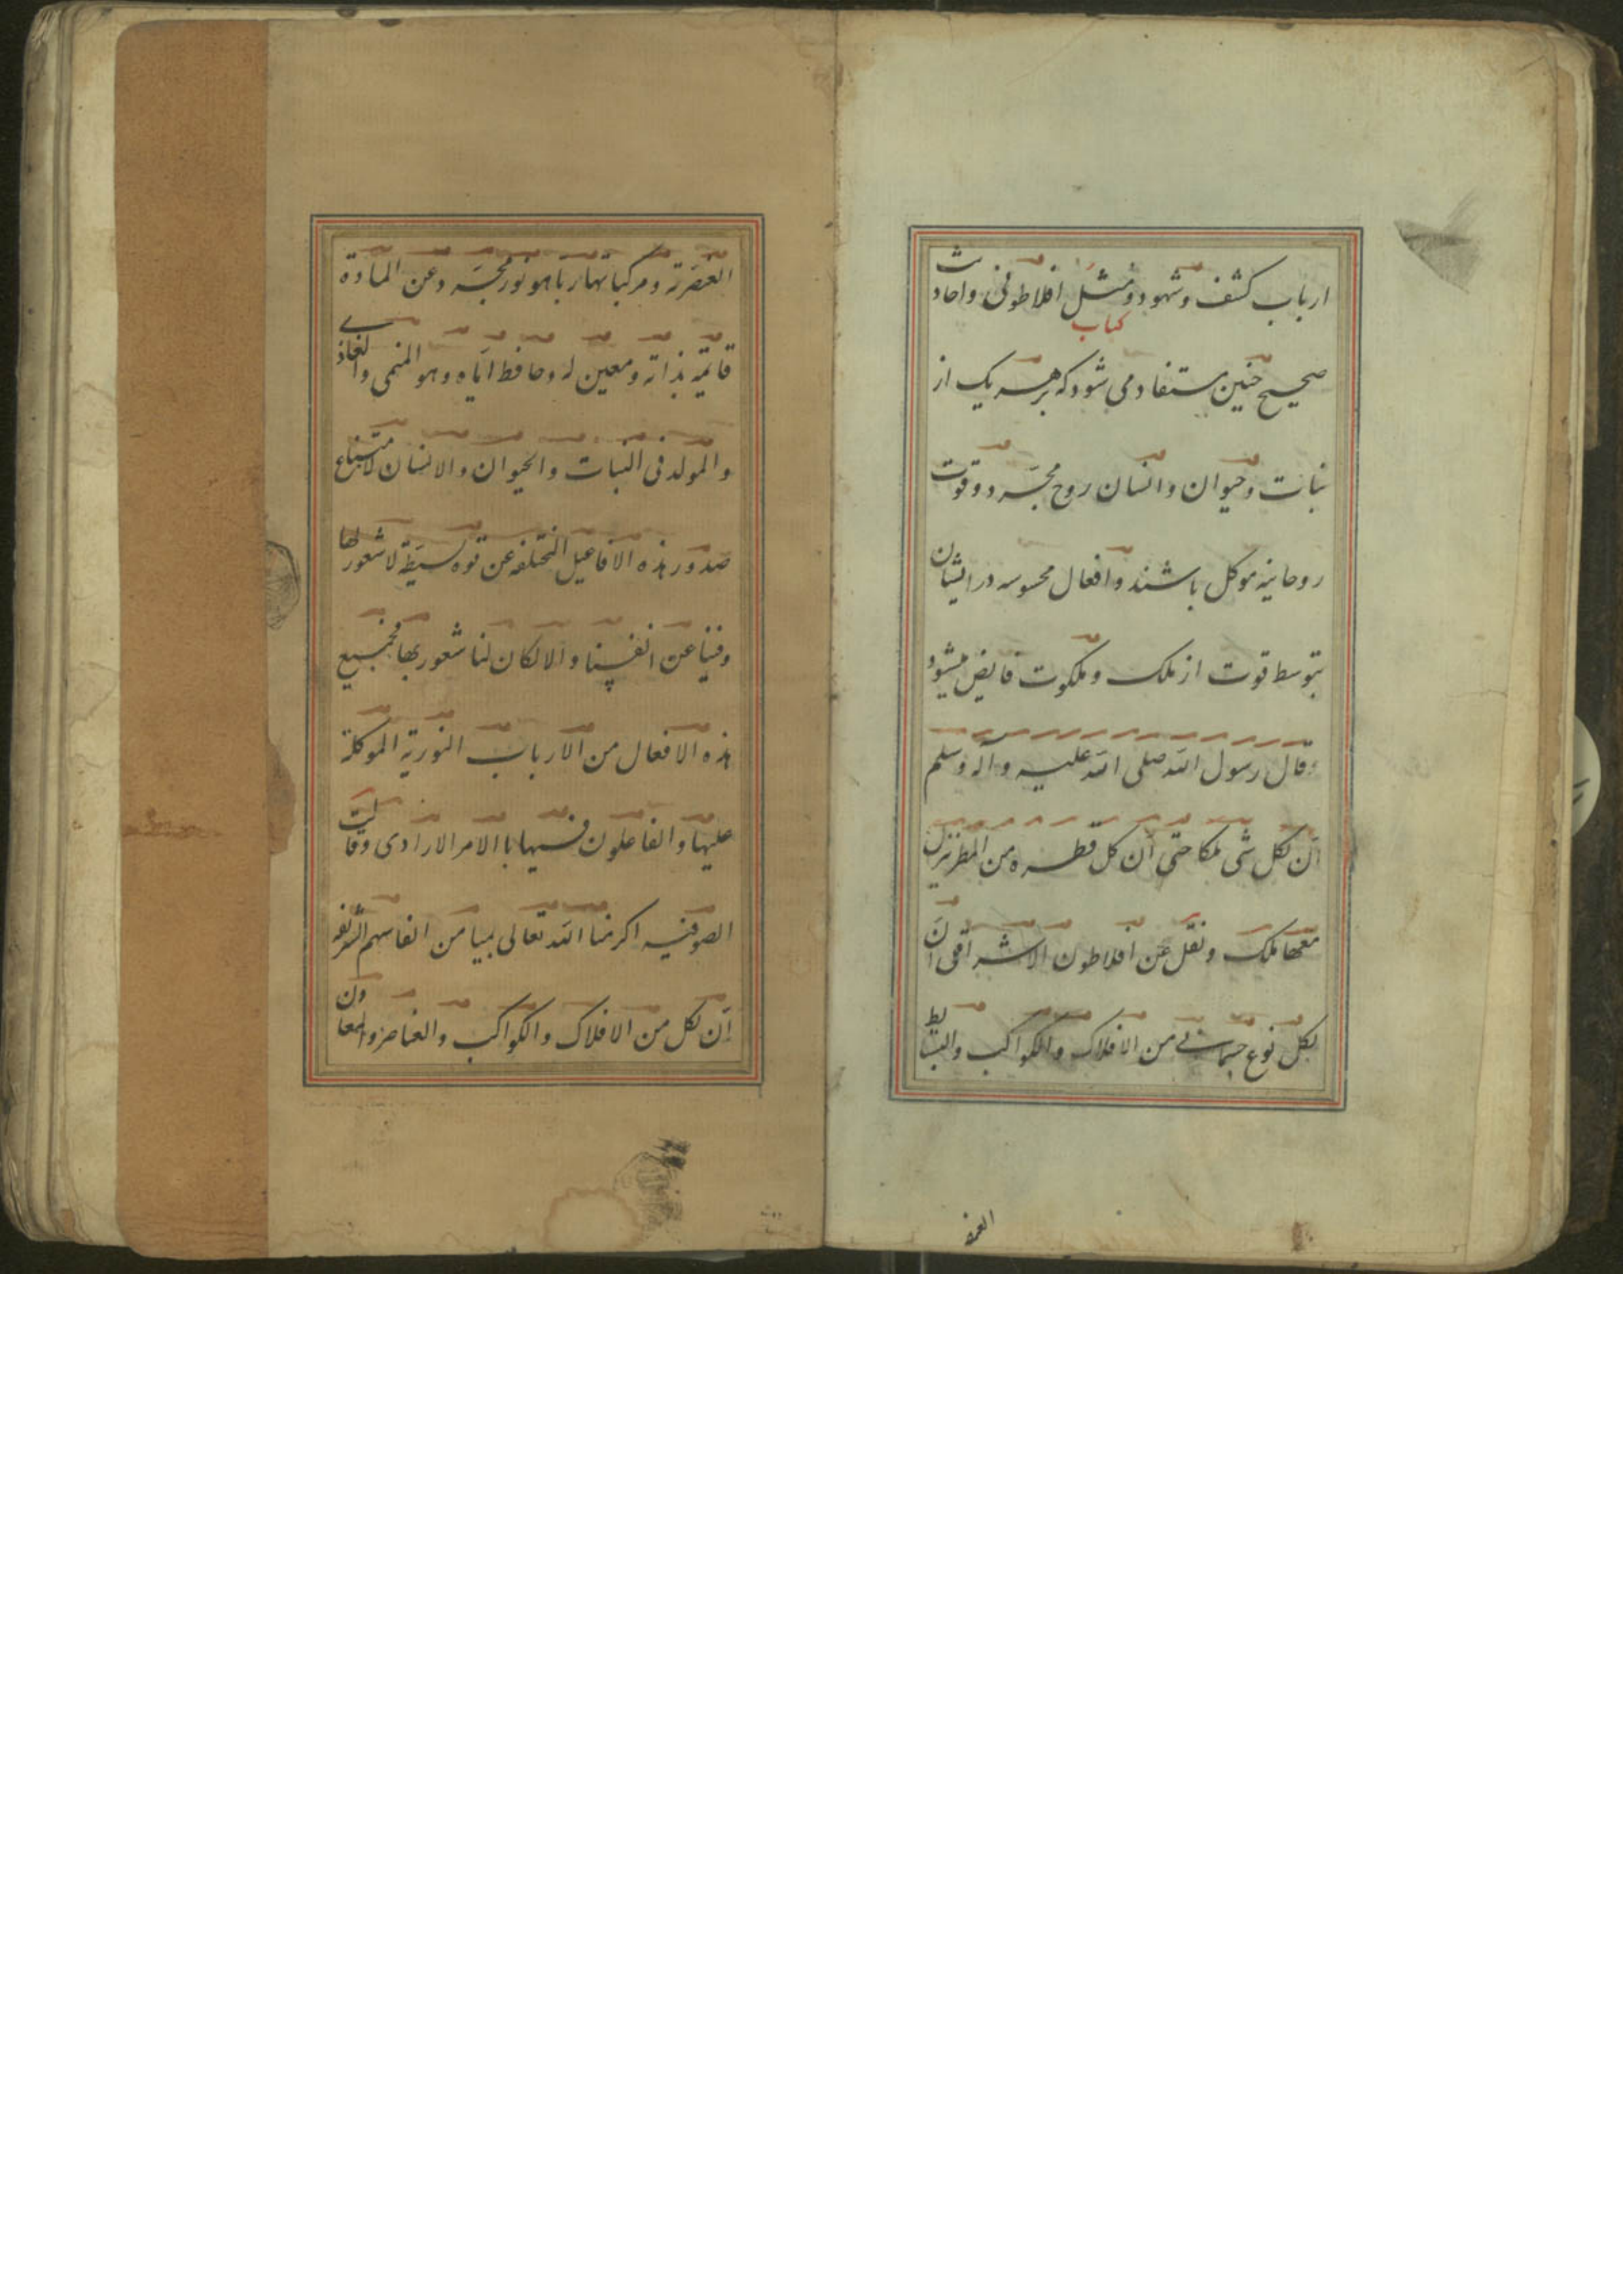 ارباب کشف و شهود و مثل افلاطونی و احادیث
کتاب
صحیح چنین مستفاد می شود که بر هر یک از
نبات و حیوان و انسان روح مجرد و قوت
روحانیه موکل باشند و افعال محسوسه در ایشان
بتوسط قوت از ملک و ملکوت فایض میشود
وقال رسول الله صلی الله علیه وآله وسلم
ان لکل شی ملکا حتی ان کل قطره من المطر ینزل
معها ملک ونقل عن افلاطون الاشراقی ان
لکل نوع جسمانے من الافلاک والکواکب والبسایط
العنصریة ومرکباتها ربا هو نور مجرد عن المادة
قایمة بذاته ومعین له وحافظ ایاه وهو المنمی والغاذے
والمولد فی النبات والحیوان والانسان لامتناع
صدور هذه الافاعیل المختلفه عن قوه بسیطة لا شعور لها
وفینا عن انفسنا والا لکان لنا شعور بها فجمیع
هذه الافعال من الارباب النوریة الموکلة
علیها والفاعلون فیها باالامر الارادی وقالت
الصوفیه اکرمنا الله تعالی بمیامن انفاسهم الشریفه
ان لکل من الافلاک والکواکب والعناصر والمعادن